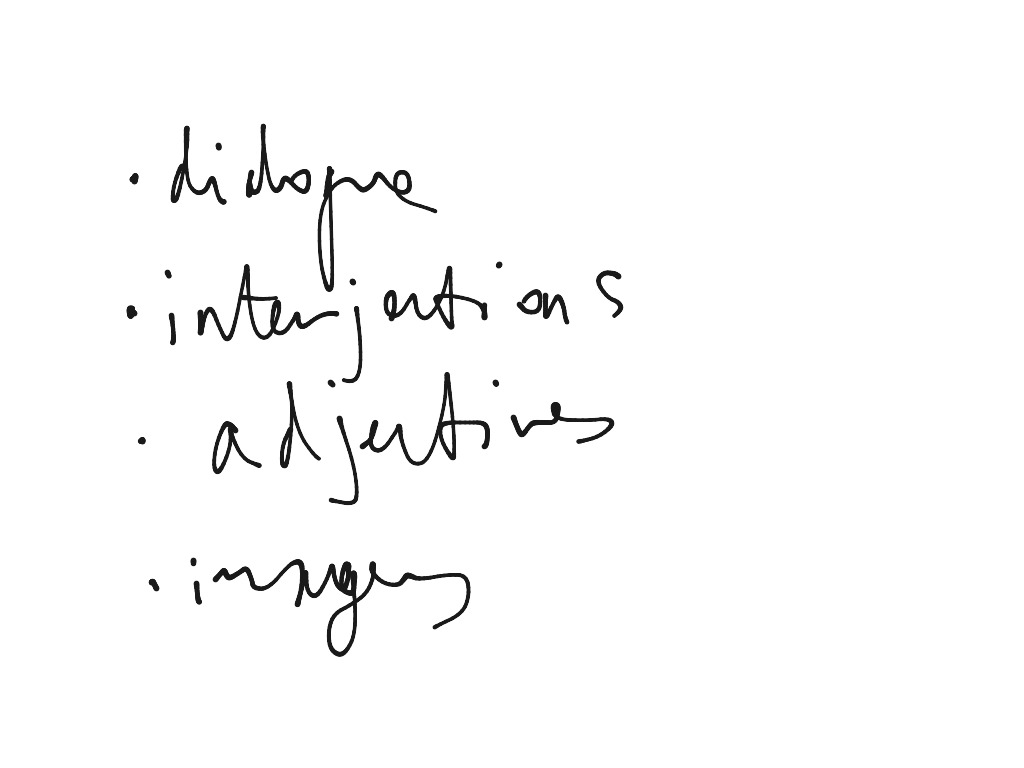 · dialogue
· interjections
· adjectives
· images